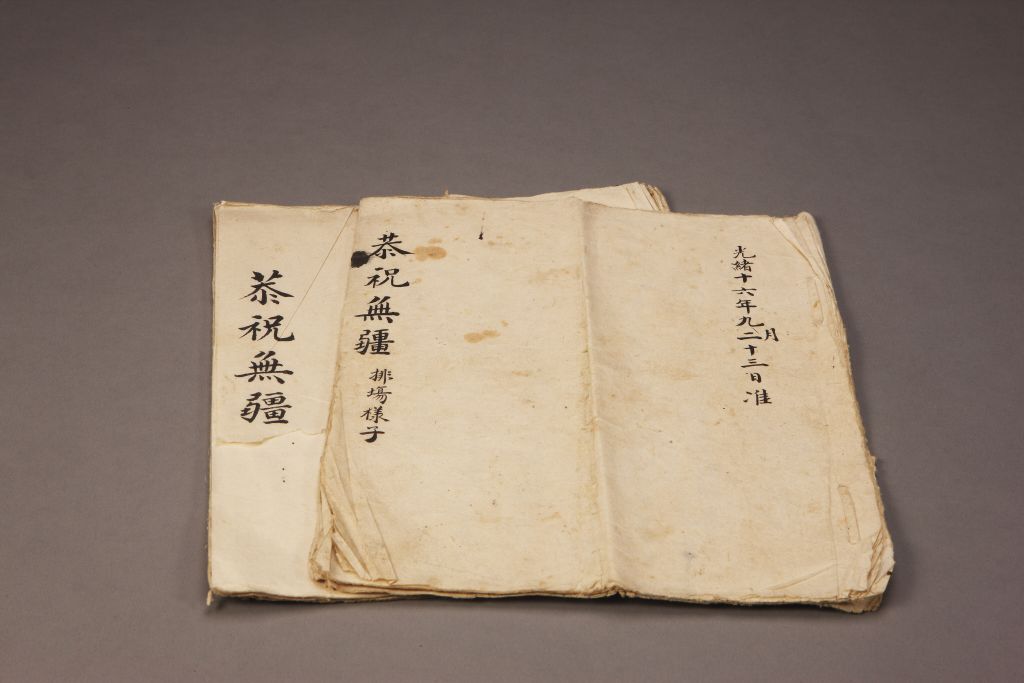 光緒十六年九月二十三日准
恭祝無疆 排場樣子
恭祝無疆